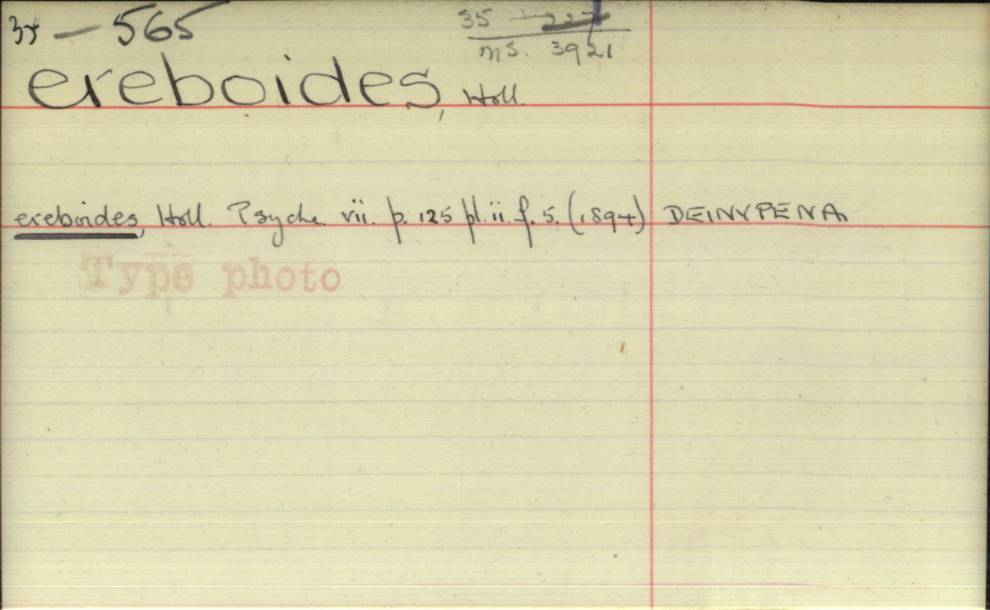 35 — 565
35 — 227
ms. 3921
ereboides, Holl.
ereboides, Holl. Psyche vii. p. 125 pl. ii. f. 5. (1894) DEINYPENA
Type photo